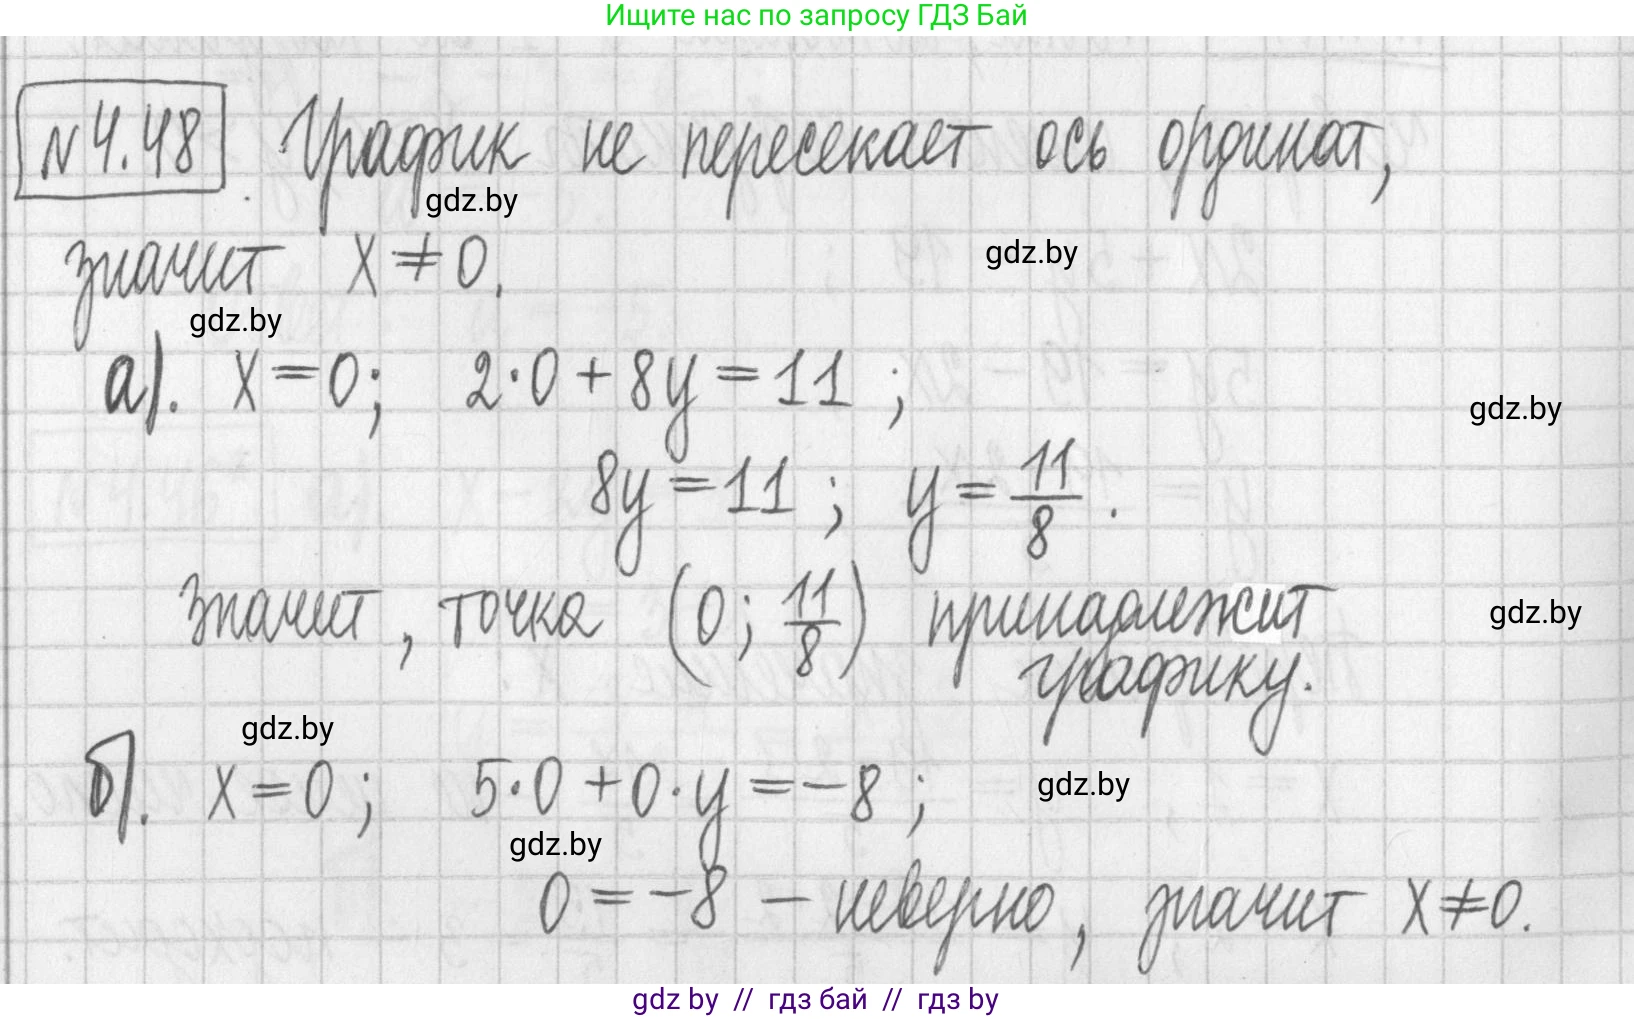 Ищите нас по запросу ГДЗ Бай
№ 4.48. График не пересекает ось ординат,
gdz.by
значит x ≠ 0.
gdz.by
gdz.by
а). x = 0; 2·0 + 8y = 11;
gdz.by
8y = 11; y = 11/8.
Значит, точка (0; 11/8) принадлежит
gdz.by
графику.
gdz.by
б). x = 0; 5·0 + 0·y = -8;
gdz.by
gdz.by
0 = -8 – неверно, значит x ≠ 0.
gdz by // гдз бай // гдз by